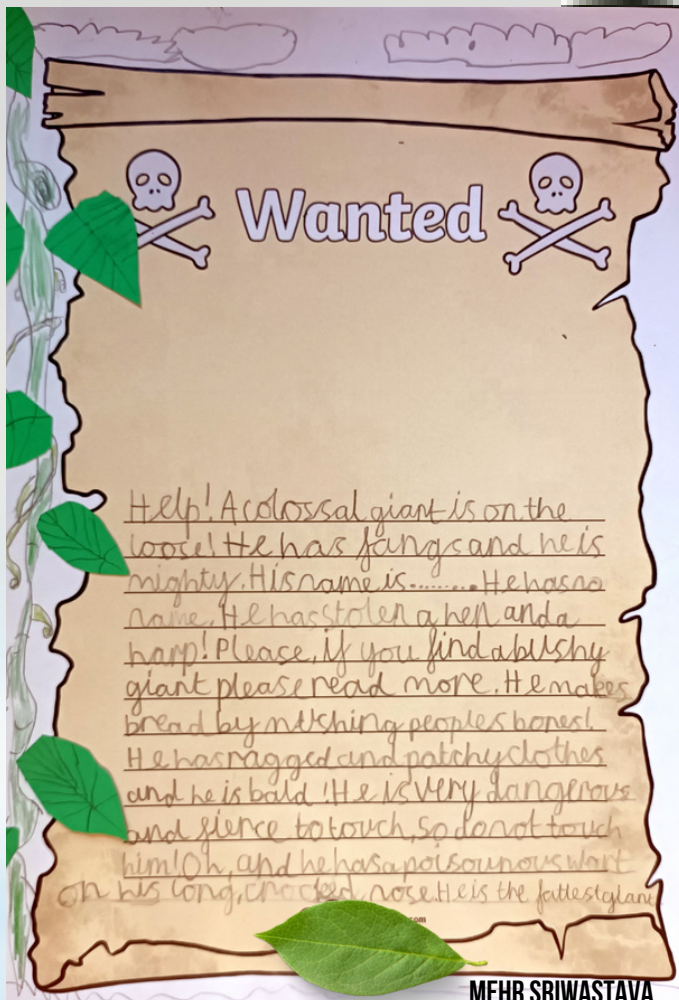 Wanted
Help! A colossal giant is on the
loose! He has fangs and he is
mighty. His name is......... He has no
name. He has stolen a hen and a
harp! Please, if you find a bushy
giant please read more. He makes
bread by mushing peoples bones!
He has ragged and patchy clothes
and he is bald! He is very dangerous
and fierce to touch, so do not touch
him! Oh, and he has a poisounous wart
on his long, crooked nose. He is the fattest giant
com
MEHR SRIWASTAVA